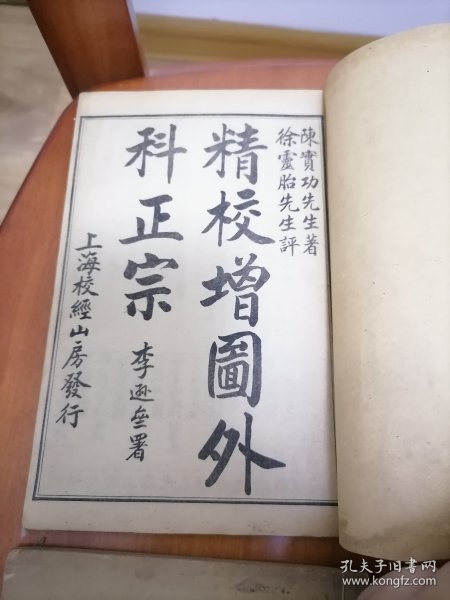 陳實功先生著
徐靈胎先生評
精校增圖外
科正宗
李遜壘署
上海校經山房發行
孔夫子旧书网
www.kongfz.com